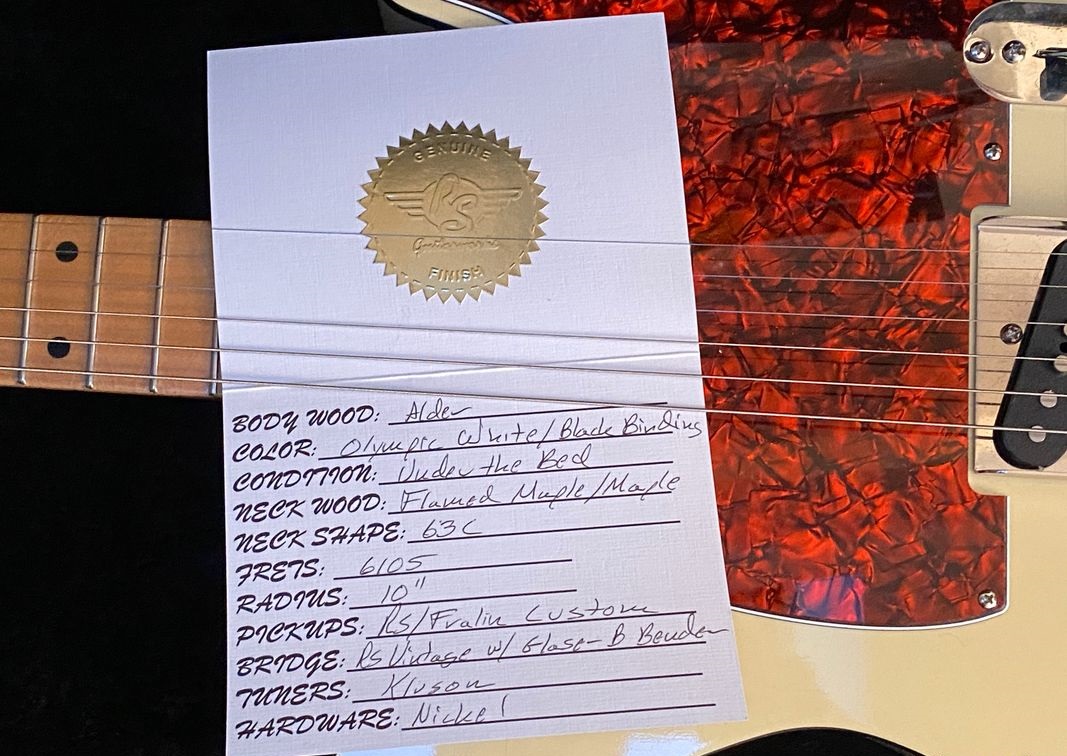 GENUINE
RS
Guitarworks
FINISH
BODY WOOD: Alder
COLOR: Olympic White/Black Binding
CONDITION: Under the Bed
NECK WOOD: Flamed Maple/Maple
NECK SHAPE: 63C
FRETS: 6105
RADIUS: 10"
PICKUPS: RS/Fralin Custom
BRIDGE: RS Vintage w/ Glaser B Bender
TUNERS: Kluson
HARDWARE: Nickel